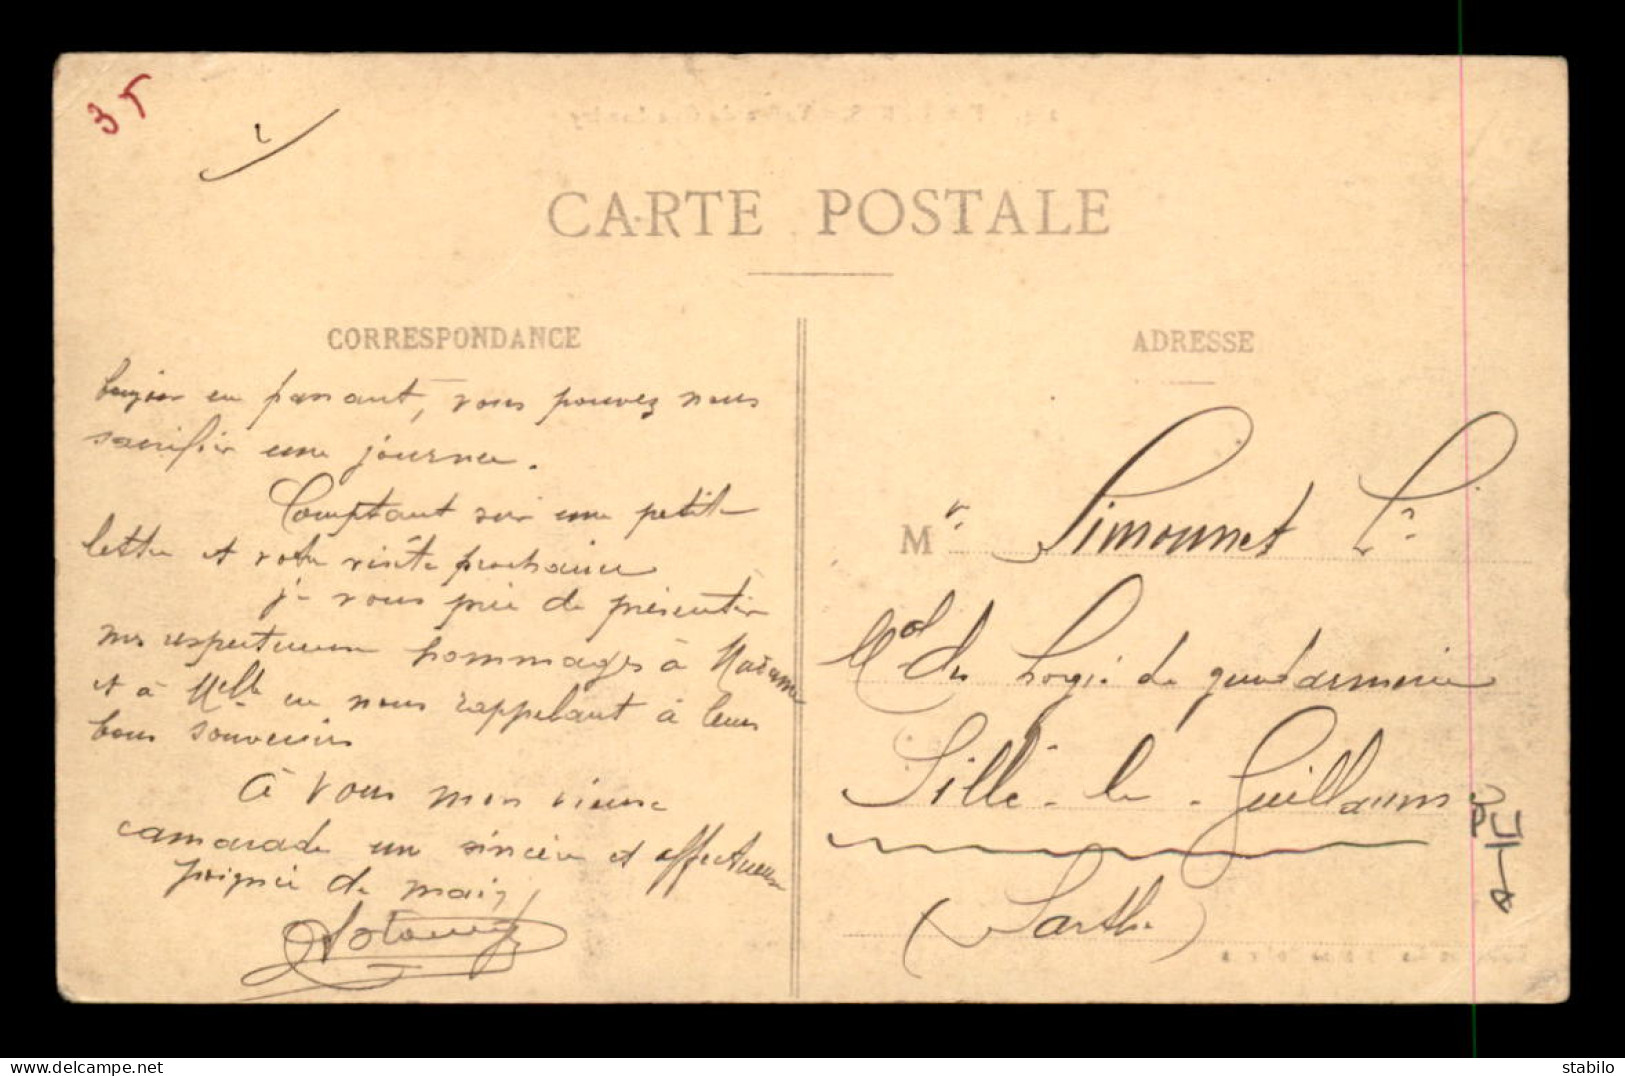 35
CARTE POSTALE
CORRESPONDANCE
bonjour en passant, vous pouvez nous
sacrifier une journee.
Comptant sur une petite
lettre et votre visite prochaine
je vous prie de présenter
mes respectueux hommages à Madame
et à Melle en nous rappelant à leurs
bons souvenirs
à vous mon vieux
camarade un sincère et affectueux
poignée de main
ADRESSE
Mr. Simonnet L.
Mal des Logis de gendarmerie
Sillé-le-Guillaume
(Sarthe)
delcampe.net
stabilo